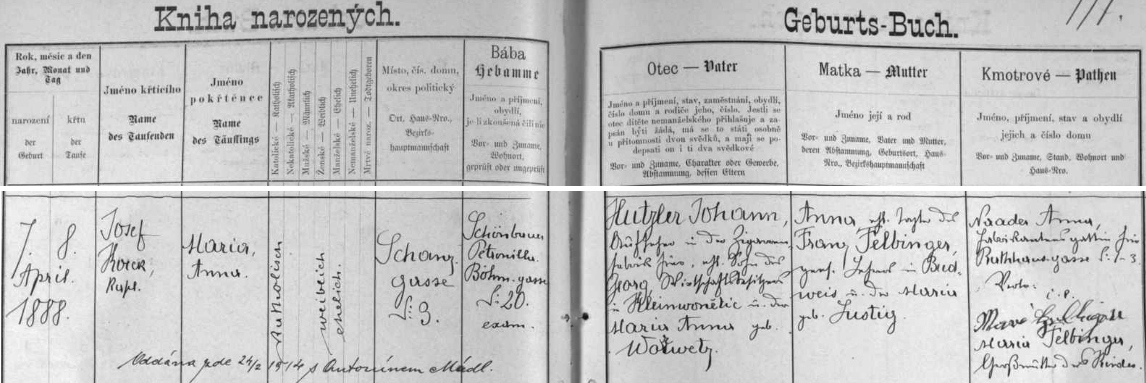 Kniha narozených.
Rok, měsíc a den
Jahr, Monat und
Tag
narození
der
Geburt
křtu
der
Taufe
Jméno křtícího
Name
des Taufenden
Jméno
pokřtěnce
Name
des Täuflings
Katolické — Katholisch
Nekatolické — Akatholisch
Mužské — Männlich
Ženské — Weiblich
Manželské — Ehelich
Nemanželské — Unehelich
Mrtvě naroz. — Todtgeboren
Místo, čís. domu,
okres politický
Ort, Haus-Nro.,
Bezirks-
hauptmannschaft
Bába
Hebamme
Jméno a příjmení,
obydlí,
je-li zkoušená čili nic
Vor- und Zuname,
Wohnort,
geprüft oder ungeprüft
7. 8.
April.
1888.
Josef
Kapl.
Maria,
Anna.
Katholisch
weiblich
ehelich.
Schanz
gasse
N: 3.
Schönbauer
Petronilla
Böhm. gasse
N: 20.
exam.
Oddána zde 24/2 1914 s Antonínem Mádl.
Geburts-Buch.
111.
Otec — Vater
Jméno a příjmení, stav, zaměstnání, obydlí,
číslo domu a rodiče jeho, čísle. Jestli se
otec dítěte nemanželského přihlašuje a za-
psán býti žádá, má se to státi osobně
u přítomnosti dvou svědků, a mají se po-
depsati on i ti dva svědkové
Vor- und Zuname, Charakter oder Gewerbe,
Abstammung, dessen Eltern
Matka — Mutter
Jméno její a rod
Vor- und Zuname, Vater und Mutter,
deren Abstammung, Geburtsort, Haus-
Nro., Bezirkshauptmannschaft
Kmotrové — Pathen
Jméno, příjmení, stav a obydlí
jejich a číslo domu
Vor- und Zuname, Stand, Wohnort und
Haus-Nro.
Hutzler Johann,
Aufseher in der Zigarren
fabrik hier, ehl. Sohn des
Georg, Wirtschaftsbesitzers
in Kleinwonětic u. der
Maria Anna geb.
Anna ehl. Tochter des
Franz Felbinger,
gewes. Lehrers in Bud-
weis u. der Maria
geb. Justig.
Naader Anna,
Fabrikantensgattin hier
Rathhausgasse N: 3
Maria Felbinger,
Großmutter des Kindes